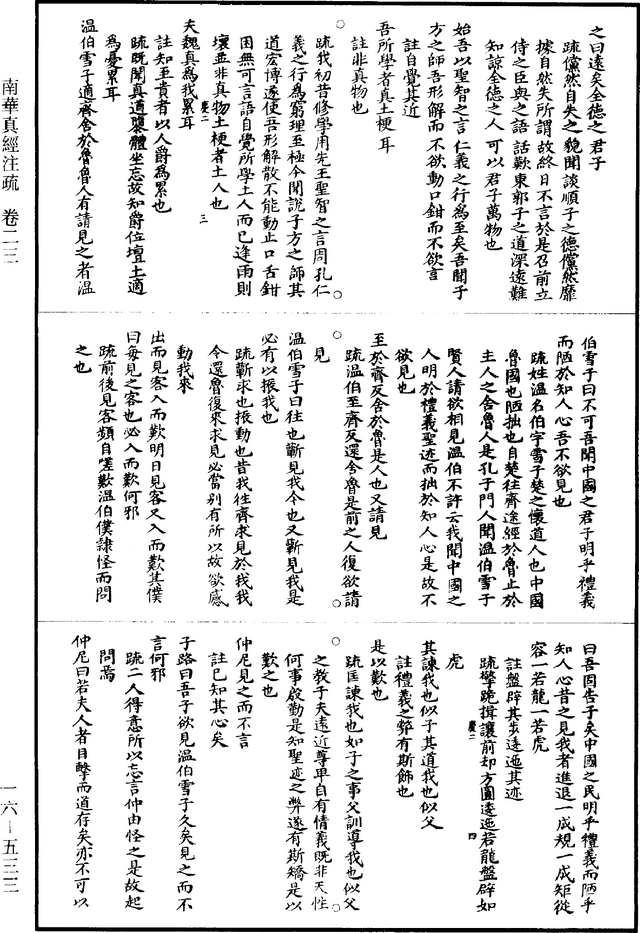 之曰遠矣全德之君子
疏儻然自失之貌聞談順子之德儻然靡
據自然失所謂故終日不言於是召前立
侍之臣與之語話歎東郭子之道深遠難
知諒全德之人可以君子萬物也
始吾以聖智之言仁義之行為至矣吾聞子
方之師吾形解而不欲動口鉗而不欲言
註自覺其近
吾所學者真土梗耳
註非真物也
疏我初昔修學用先王聖智之言周孔仁
義之行為窮理至極今聞說子方之師其
道宏博遂使吾形解散不能動止口舌鉗
困無可言語自覺所學土人而已逢雨則
壞並非真物土梗者土人也
慶二
三
夫魏真為我累耳
註知至貴者以人爵為累也
疏既聞真道隳體坐忘故知爵位壇土適
為憂累耳
溫伯雪子適齊舍於魯魯人有請見之者溫
伯雪子曰不可吾聞中國之君子明乎禮義
而陋於知人心吾不欲見也
疏姓溫名伯字雪子楚之懷道人也中國
魯國也陋拙也自楚往齊途經於魯止於
主人之舍魯人是孔子門人聞溫伯雪子
賢人請欲相見溫伯不許云我聞中國之
人明於禮義聖迹而拙於知人心是故不
欲見也
至於齊反舍於魯是人也又請見
疏溫伯至齊反還舍魯是前之人復欲請
見
溫伯雪子曰往也蘄見我今也又蘄見我是
必有以振我也
疏蘄求也振動也昔我往齊求見於我我
今還魯復來求見必當別有所以故欲感
動我來
出而見客入而歎明日見客又入而歎其僕
曰每見之客也必入而歎何邪
疏前後見客頻自嗟歎溫伯僕隸怪而問
之也
曰吾固告子矣中國之民明乎禮義而陋乎
知人心昔之見我者進退一成規一成矩從
容一若龍一若虎
註盤辟其步逶迤其迹
疏擎跪揖讓前卻方圓逶迤若龍盤辟如
慶二
四
虎
其諫我也似子其道我也似父
註禮義之弊有斯飾也
是以歎也
疏匡諫我也如子之事父訓導我也似父
之教子夫遠近尊卑自有情義既非天性
何事殷勤是知聖迹之弊遂有斯矯是以
歎之也
仲尼見之而不言
註已知其心矣
子路曰吾子欲見溫伯雪子久矣見之而不
言何邪
疏二人得意所以忘言仲由怪之是故起
問焉
仲尼曰若夫人者目擊而道存矣亦不可以
南華真經注疏　卷二三
一六－五三三